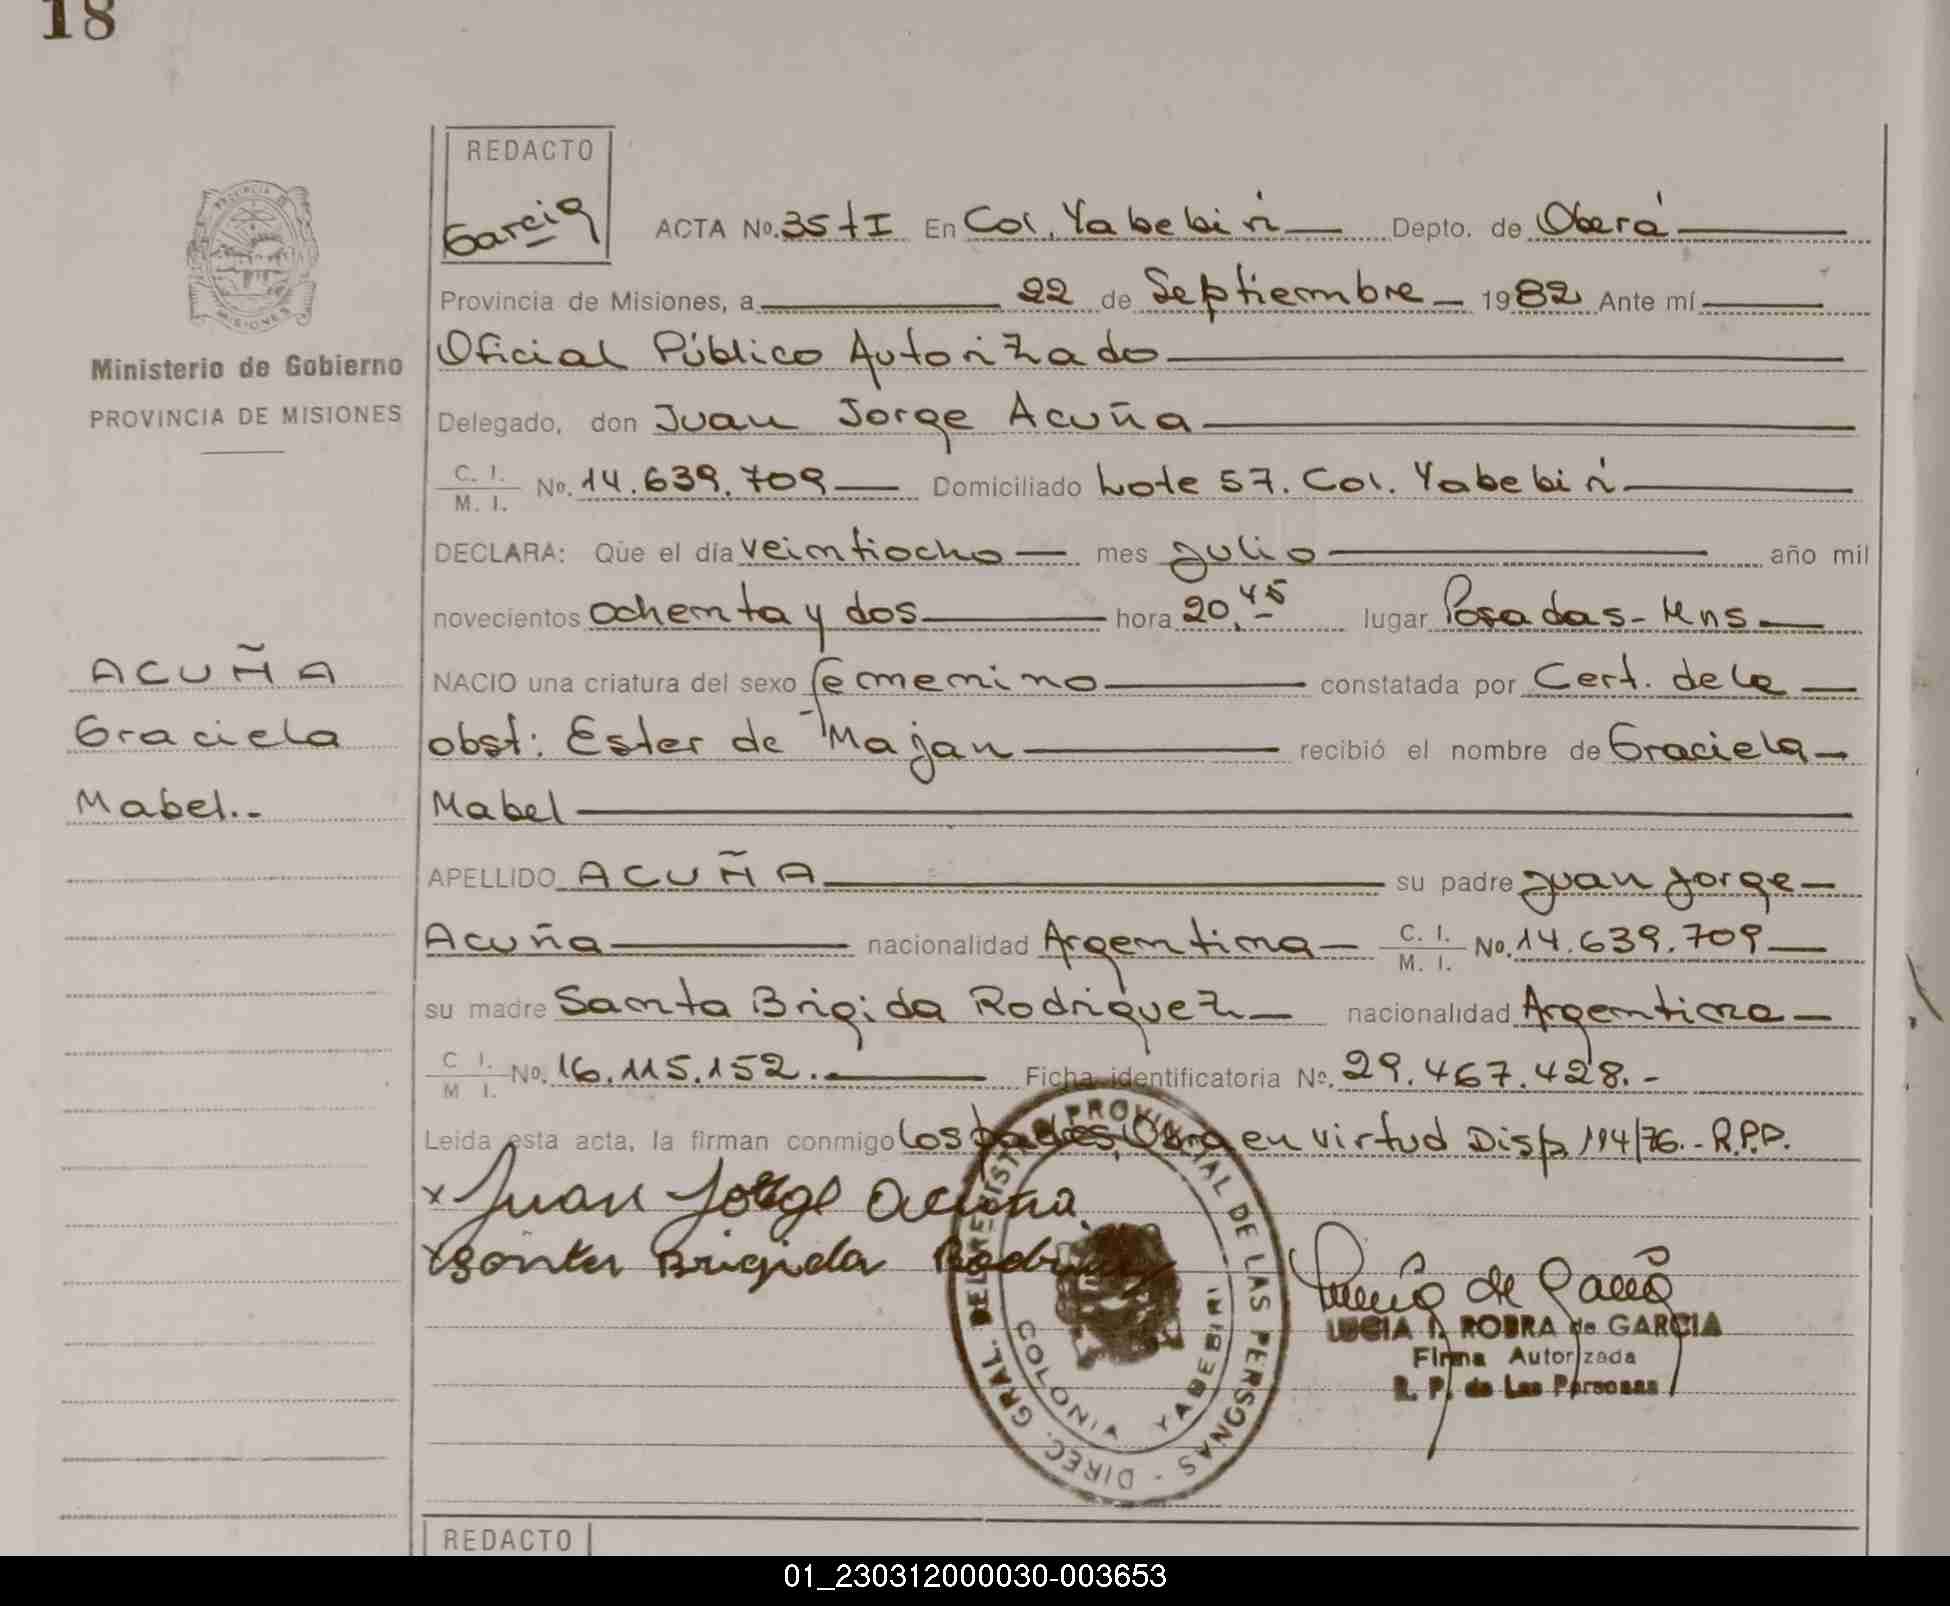 18
REDACTO
Garcia
PROVINCIA DE
MISIONES
Ministerio de Gobierno
PROVINCIA DE MISIONES
ACUÑA
Graciela
Mabel.-
ACTA No. 35 tI En Col. Yabebirí Depto. de Oberá
Provincia de Misiones, a 22 de Septiembre 1982 Ante mí
Oficial Público Autorizado
Delegado, don Juan Jorge Acuña
C. I. / M. I. No. 14.639.709 Domiciliado Lote 57. Col. Yabebirí
DECLARA: Que el día veintiocho mes Julio año mil
novecientos ochenta y dos hora 20,45 lugar Posadas-Mns
NACIO una criatura del sexo femenino constatada por Cert. de la
obst: Ester de Majan recibió el nombre de Graciela
Mabel
APELLIDO ACUÑA su padre Juan Jorge
Acuña nacionalidad Argentina C. I. / M. I. No. 14.639.709
su madre Santa Brigida Rodriguez nacionalidad Argentina
C I. / M I. No. 16.115.152. Ficha identificatoria No. 29.467.428.-
Leida esta acta, la firman conmigo los padres, Obra en virtud Disp. 114/76.- R.P.P.
x Juan Jorge Acuña
x Santa Brigida Rodriguez
DIREC. GRAL. DEL REGISTRO PROVINCIAL DE LAS PERSONAS -
COLONIA YABEBIRI
Lucia de Garcia
LUCIA I. ROBRA de GARCIA
Firma Autorizada
R. P. de Las Personas
REDACTO
01_230312000030-003653